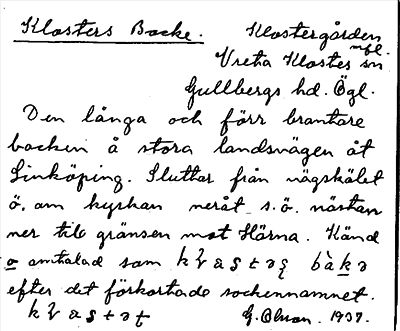 Klosters Backe. Klostergården mfl.
Vreta Klosters sn
Gullbergs hd. Ögl.
Den långa och förr brantare
backen å stora landsvägen åt
Linköping. Sluttar från vägskälet
ö. om kyrkan neråt s.ö. nästan
ner till gränsen mot Härna. Känd
o omtalad som
efter det förkortade sockennamnet.
G. Olson. 1937.